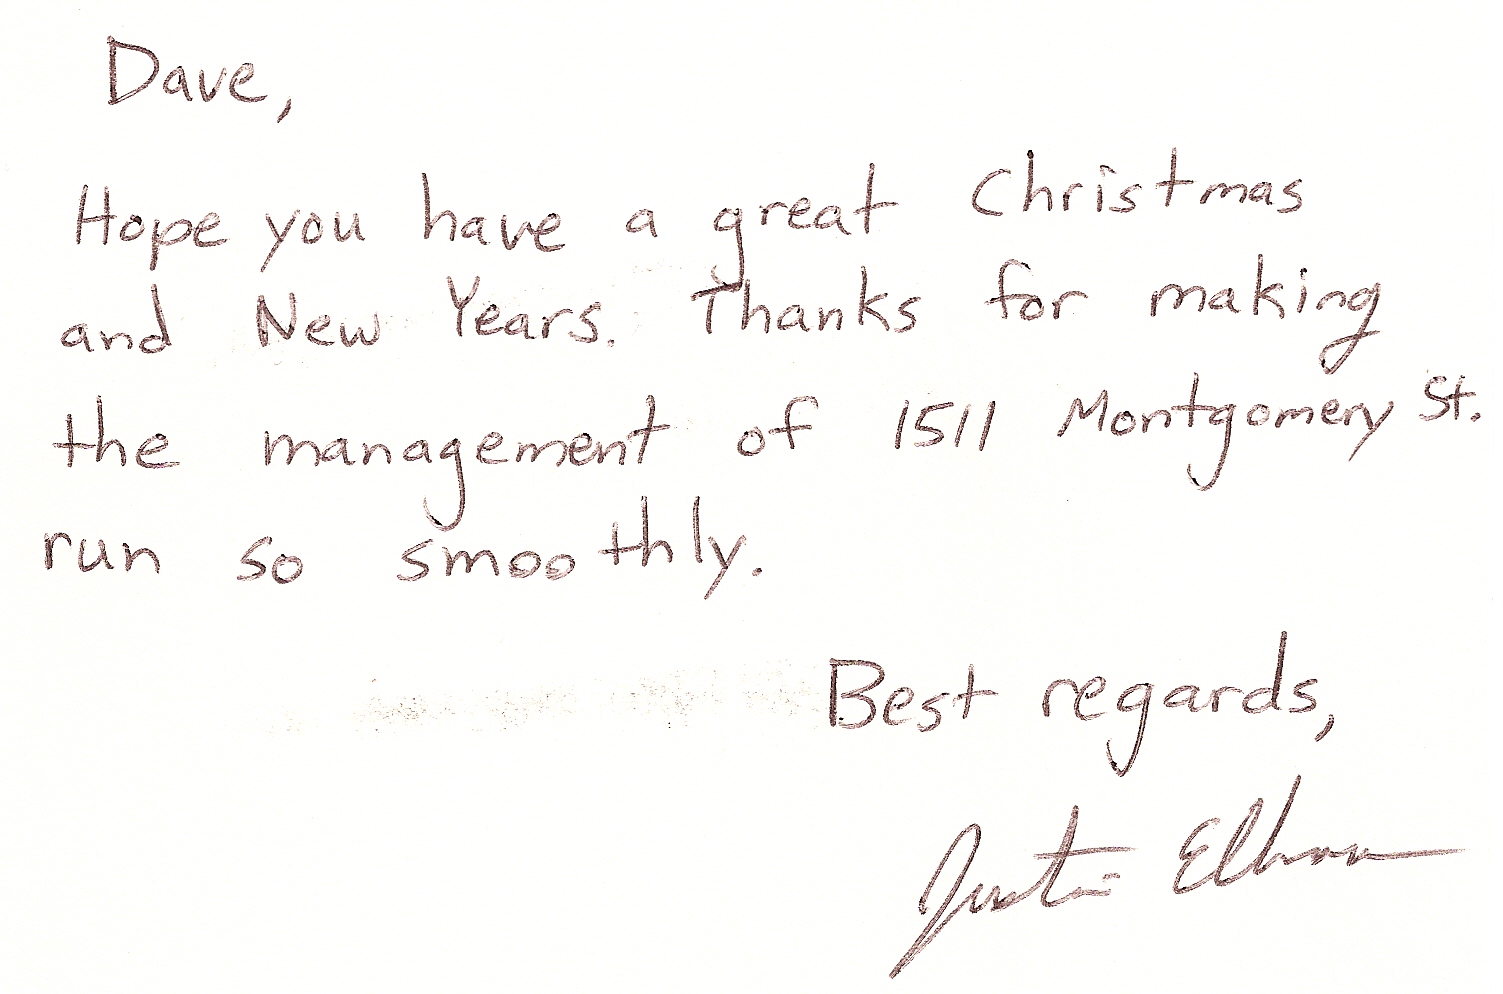 Dave,
Hope you have a great Christmas
and New Years. Thanks for making
the management of 1511 Montgomery St.
run so smoothly.
Best regards,
Justin